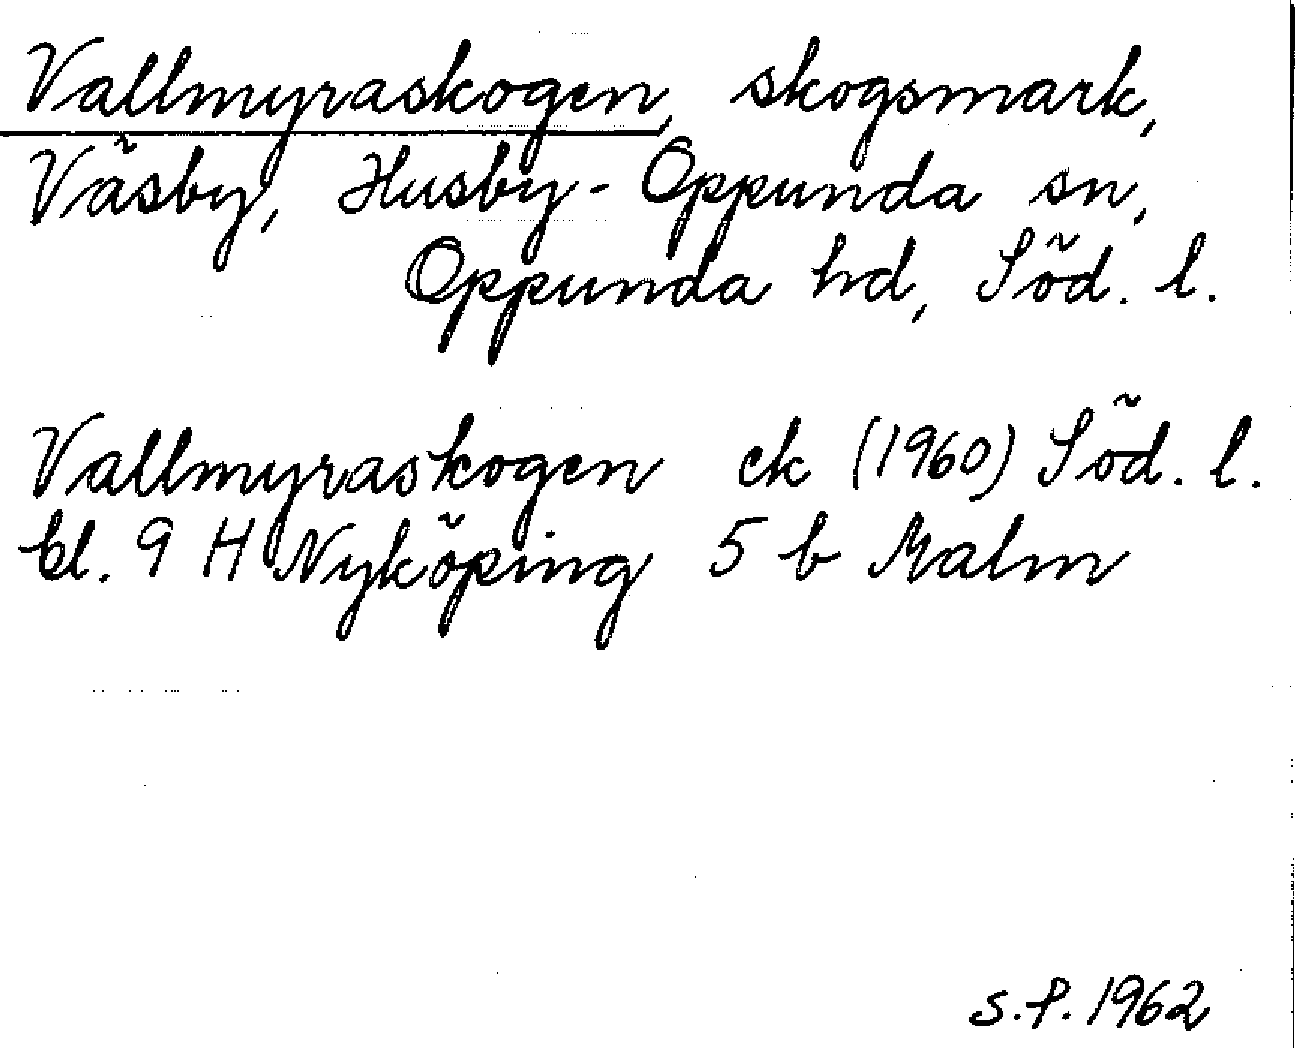 Vallmyraskogen, skogsmark,
Väsby, Husby-Oppunda sn,
Oppunda hd, Söd. l.
Vallmyraskogen ek (1960) Söd. l.
bl. 9 H Nyköping 5 b Malm
S.P. 1962